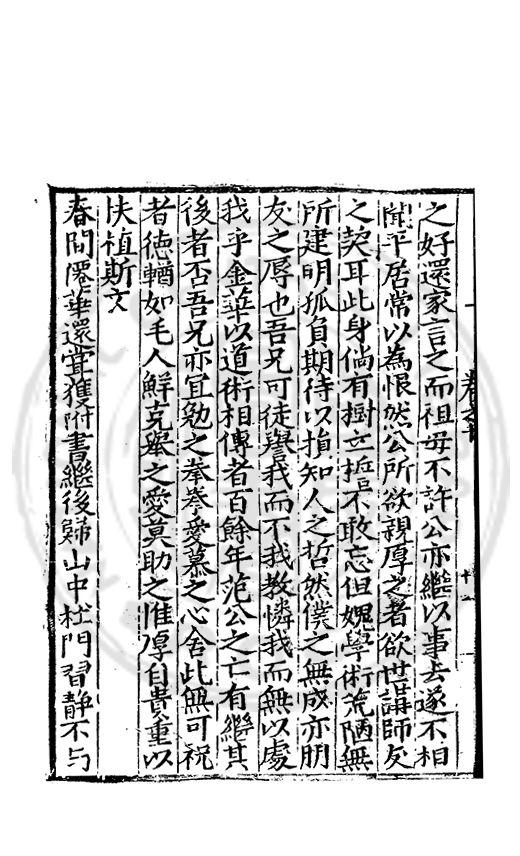 之好還家言之而祖母不許公亦繼以事去遂不相
聞平居常以為恨然公所欲親厚之者欲世講師友
之契耳此身倘有樹立詎不敢忘但媿學術荒陋無
所建明孤負期待以損知人之哲然僕之無成亦朋
友之辱也吾兄可徒譽我而不我教憐我而無以處
我乎金華以道術相傳者百餘年范公之亡有繼其
後者否吾兄亦宜勉之拳拳愛慕之心舍此無可祝
者德輶如毛人鮮克舉之愛莫助之惟厚自貴重以
扶植斯文
春間僊華還嘗獲附書繼後歸山中杜門習靜不与